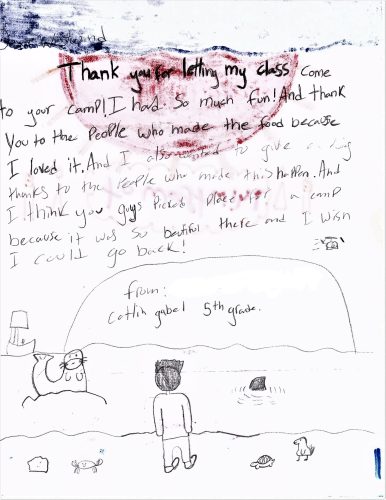 Thank you for letting my class come
to your camp! I had so much fun! And thank
you to the people who made the food because
I loved it. And I also wanted to give a
thanks to the people who made this happen. And
I think you guys picked place for a camp
because it was so beutiful there and I wish
I could go back!
from:
Catlin gabel 5th grade.